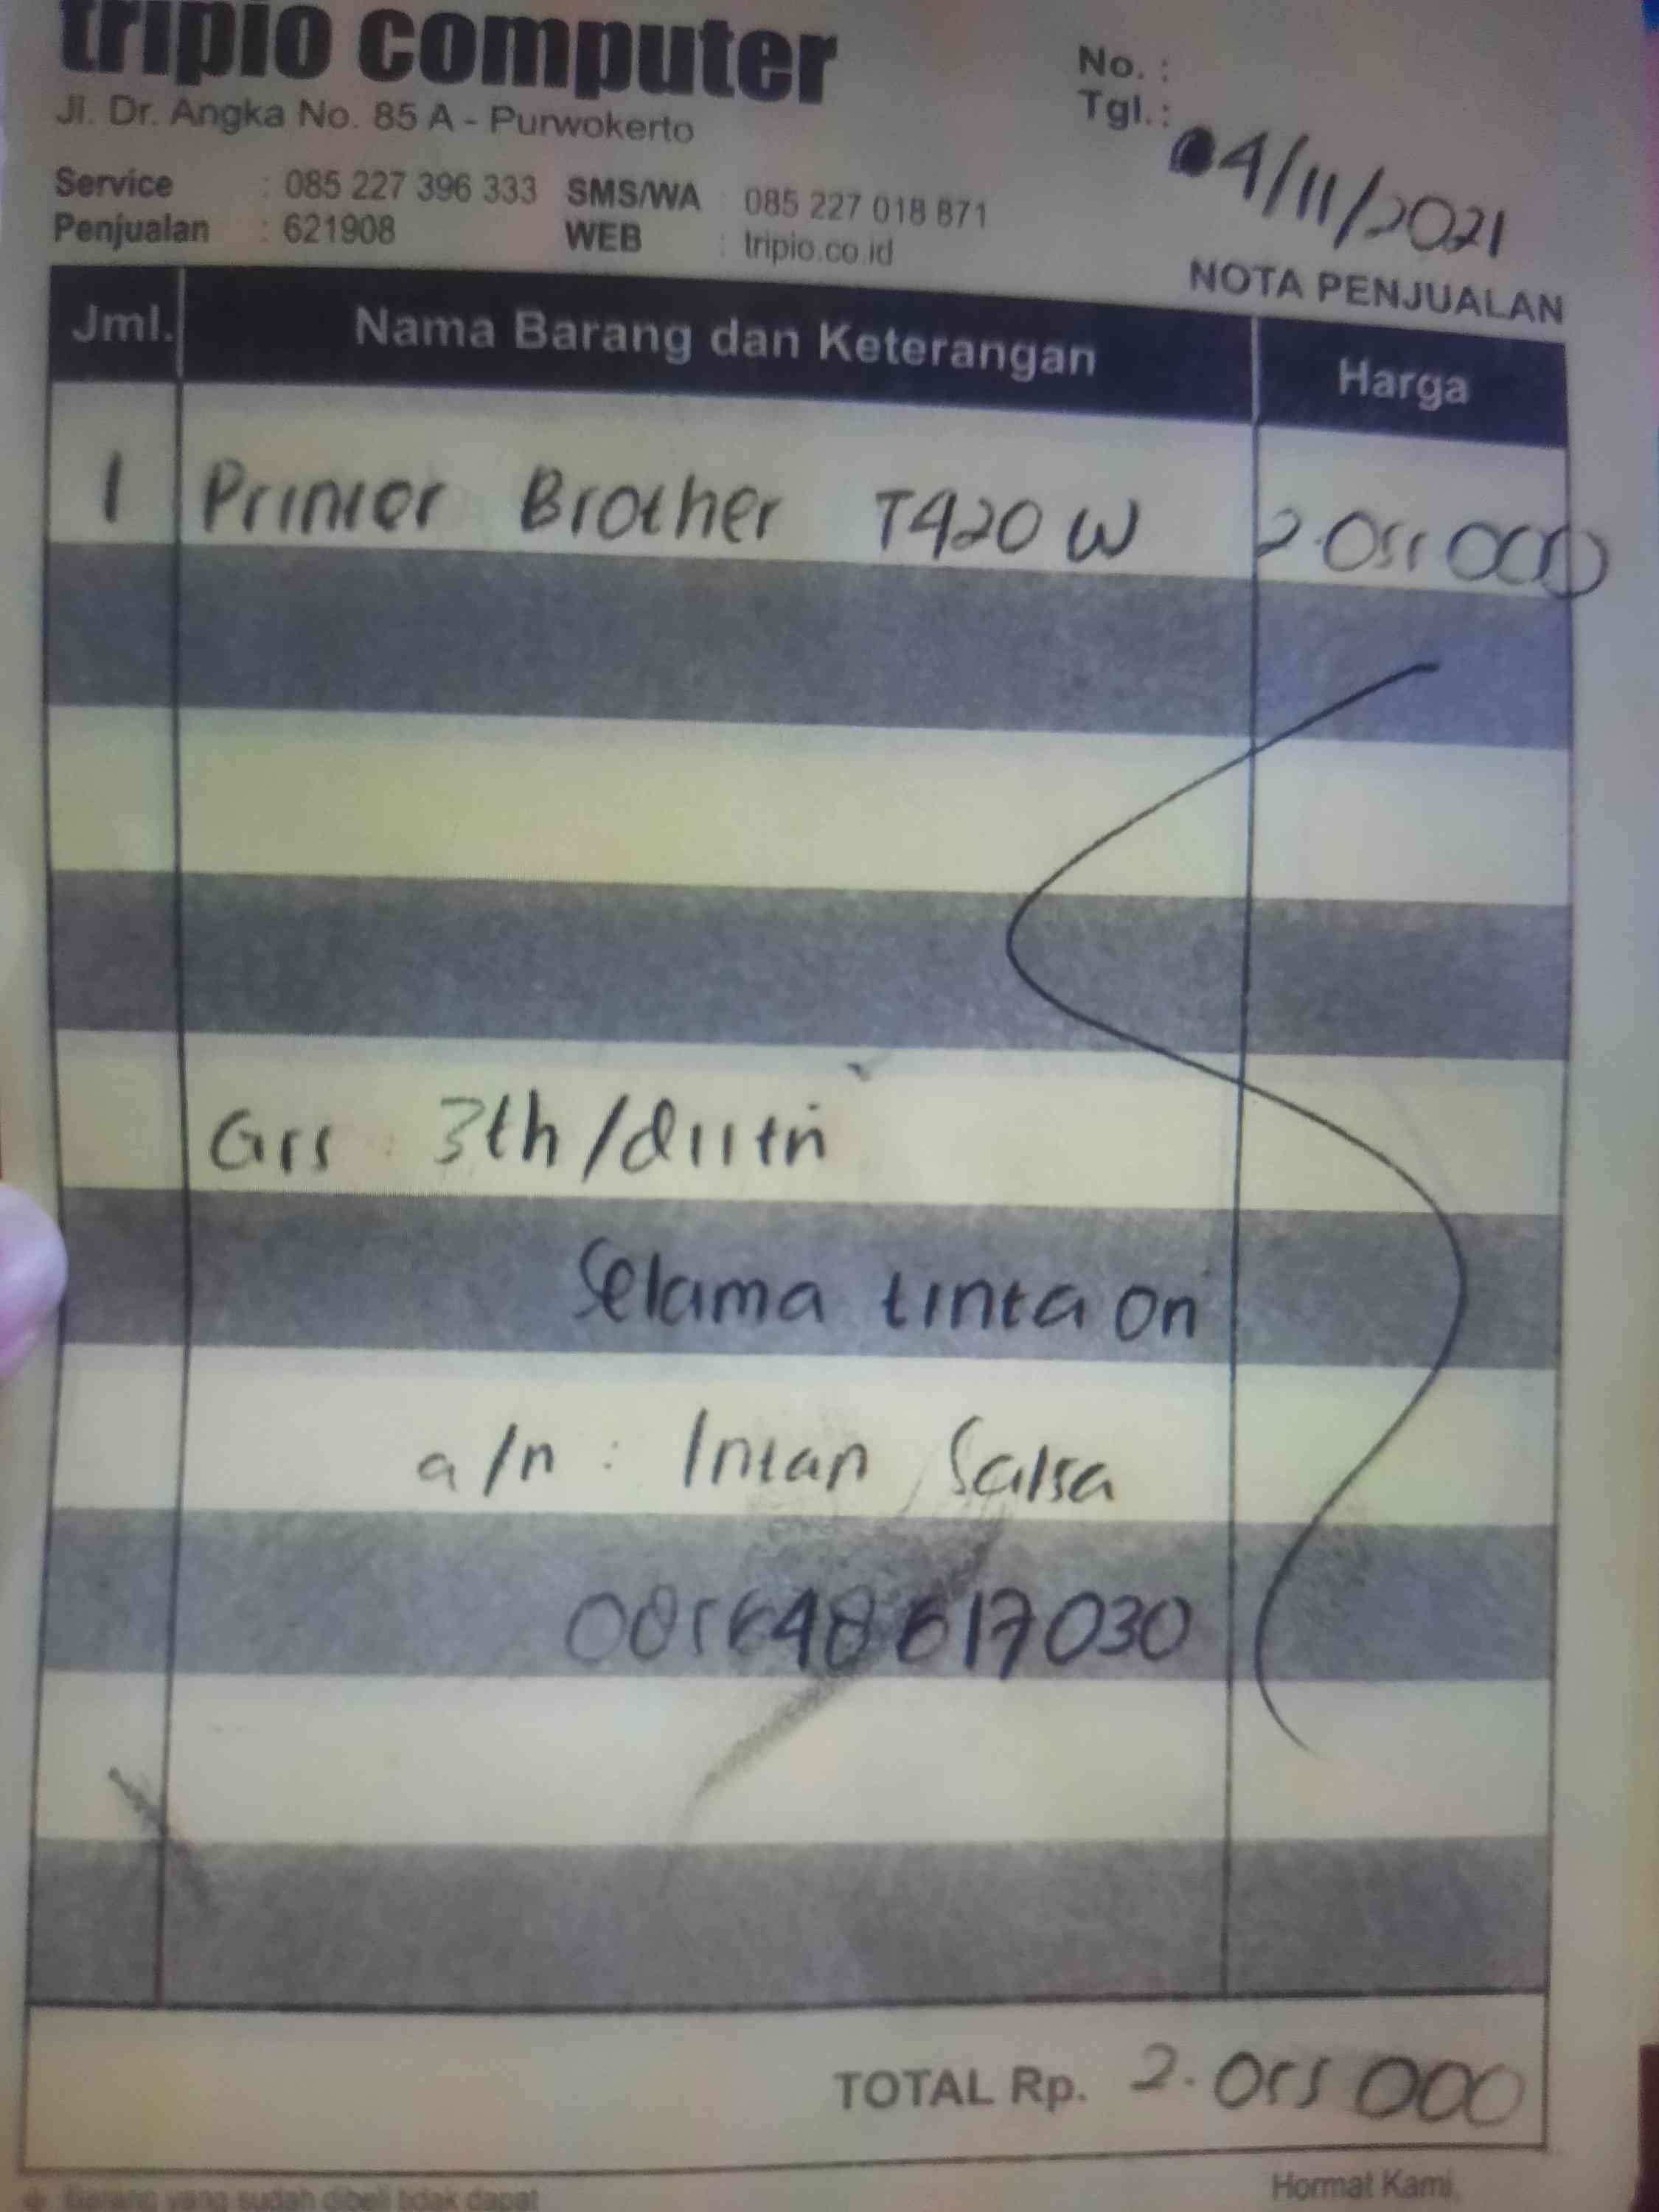 tripio computer
Jl. Dr. Angka No. 85 A - Purwokerto
No. :
Tgl. : 04/11/2021
Service : 085 227 396 333 SMS/WA : 085 227 018 871
Penjualan : 621908 WEB : tripio.co.id
NOTA PENJUALAN
Jml. Nama Barang dan Keterangan Harga
1 Printer Brother T420 W 2.055 000
Grs 3th/
Selama tinta ori
a/n : Intan Salsa
085648617030
TOTAL Rp. 2.055 000
Hormat Kami
Barang yang sudah dibeli tidak dapat